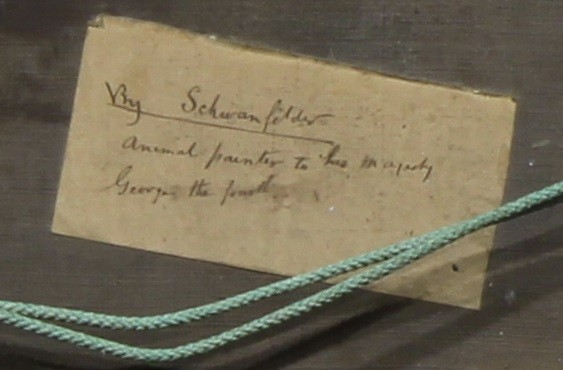 By Schwanfelder
Animal painter to his Majesty
George the fourth